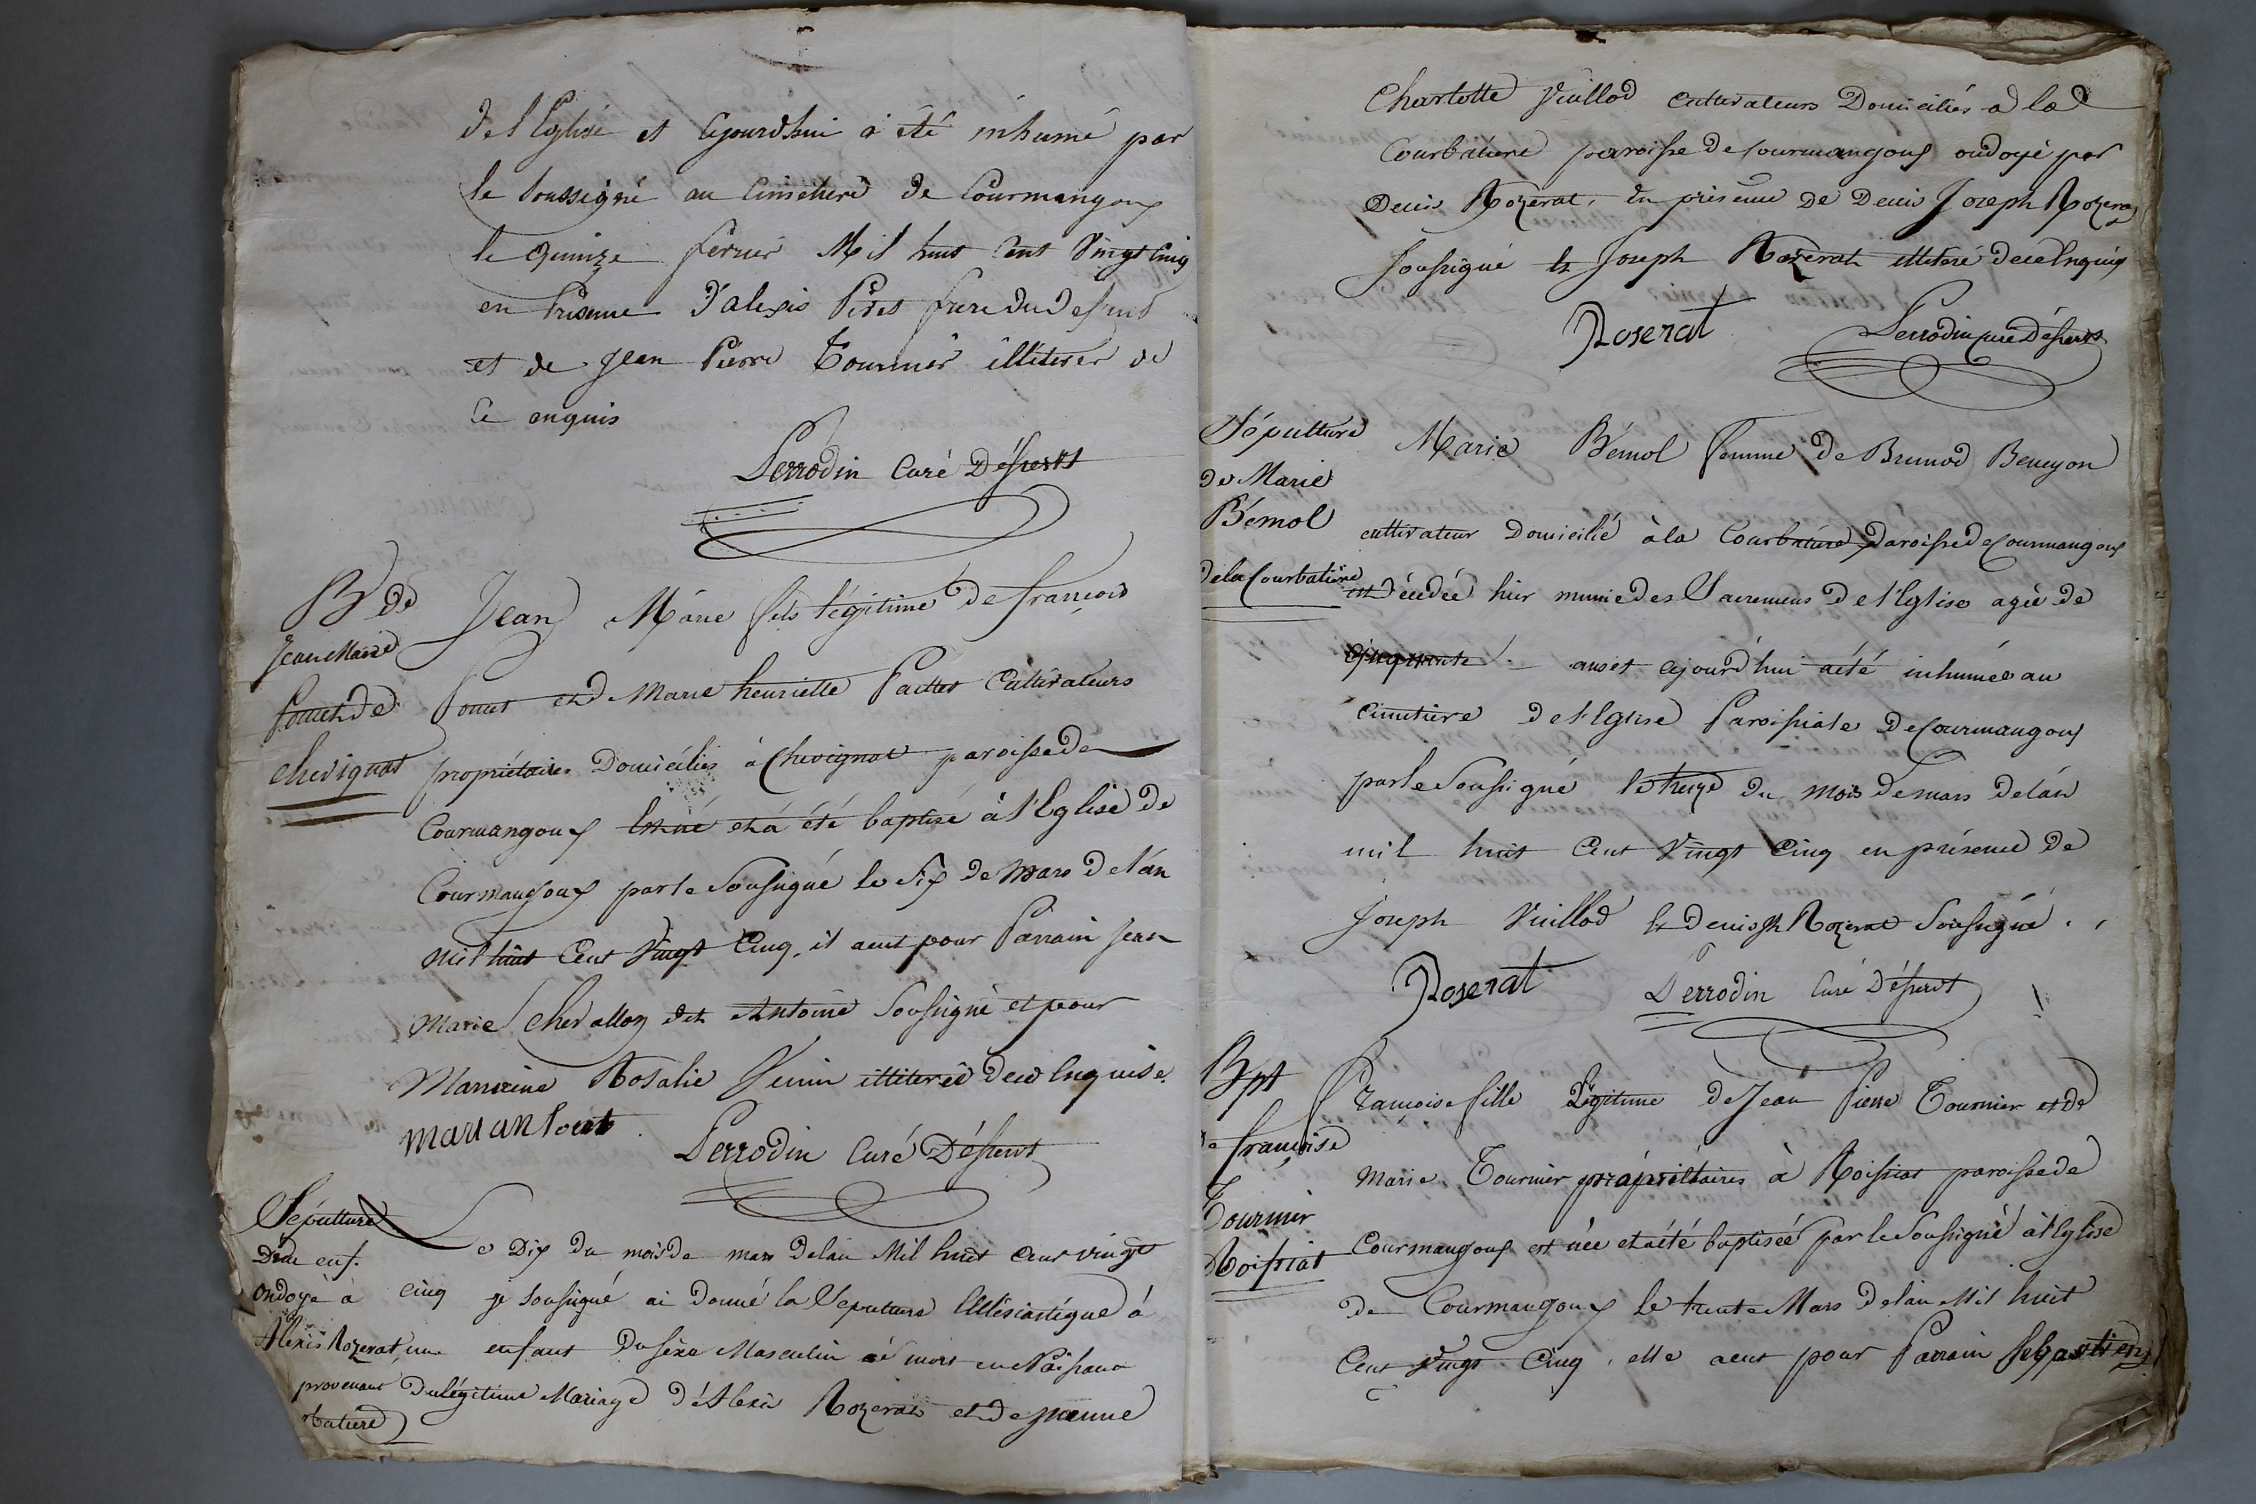 de l'Eglise et cejourdhui a été inhumé par
le Soussigné au Cimetiere de Courmangoux
le quinze fevrier Mil huit Cent Vingt Cinq
en Presence d'alexis frere du defunt
et de Jean Pierre Tournier illiterer de
Ce enquis
Perrodin Curé Désserst
Bt de
Jean Marie
Pont de
chevignat
Jean Marie fils légitime de françois
et de Marie henriette Paittet Cultivateurs
propriétaires Domiciliés à Chevignat paroisse de
Courmangoux Est né et à été baptisé à l'Eglise de
Courmangoux par le Soussigné le Six de Mars de l'an
Mil huit Cent Vingt Cinq. il aeut pour Parrain Jean
Marie Chevallon dit Antoine Soussigné et pour
Marraine Rosalie illiterée de ce Enquise.
Perrodin Curé Désserst
Sépulture
D'un enf.
ondoyé à
Alexis Rozerat
Le Dix du mois de mars de lan Mil huit Cent vingt
cinq je soussigné ai Donné la Sepulture Ecclésiastique à
une enfant Du séxe Masculin né mort en Naissant
provenant Du légitime Mariage d'Alexis Rozerat et de Jeanne
rbatiere
Charlotte Vuillod Cultivateurs Domiciliés a la
Courbatiere paroisse de Courmangoux ondoyé par
Denis Rozerat. En présence de Denis Joseph Rozerat
Soussigné et Joseph Rozerat illiteré de ce Enquis
Roserat
Perrodin curé Désserst
Sépulture
de Marie
Bémol
de la Courbatière
Marie Bémol femme de Brunod Beneyon
cultivateur Domicilié à la Courbatiere Paroisse de Courmangoux
est Décédée hier munie des Sacremens de l'Eglise agée de
Cinquante ans et cejourd'hui aété inhumée au
Cimetière de l'Eglise Paroissiale de Courmangoux
par le Soussigné le treize du mois de mars de lán
mil huit Cent Vingt Cinq en présence de
Joseph Vuillod et denis Rozerat Soussigné.
Roserat
Perrodin Curé Désserst
Bpt
de françoise
Tournier
Roissiat
Françoise fille Légitime de Jean Pierre Tournier et de
Marie Tournier propriétaires à Roissiat paroisse de
Courmangoux est née et aété baptisée par le Soussigné à l'Eglise
de Courmangoux le trente Mars de lan Mil huit
Cent Vingt Cinq. elle aeut pour Parrain Sebastien